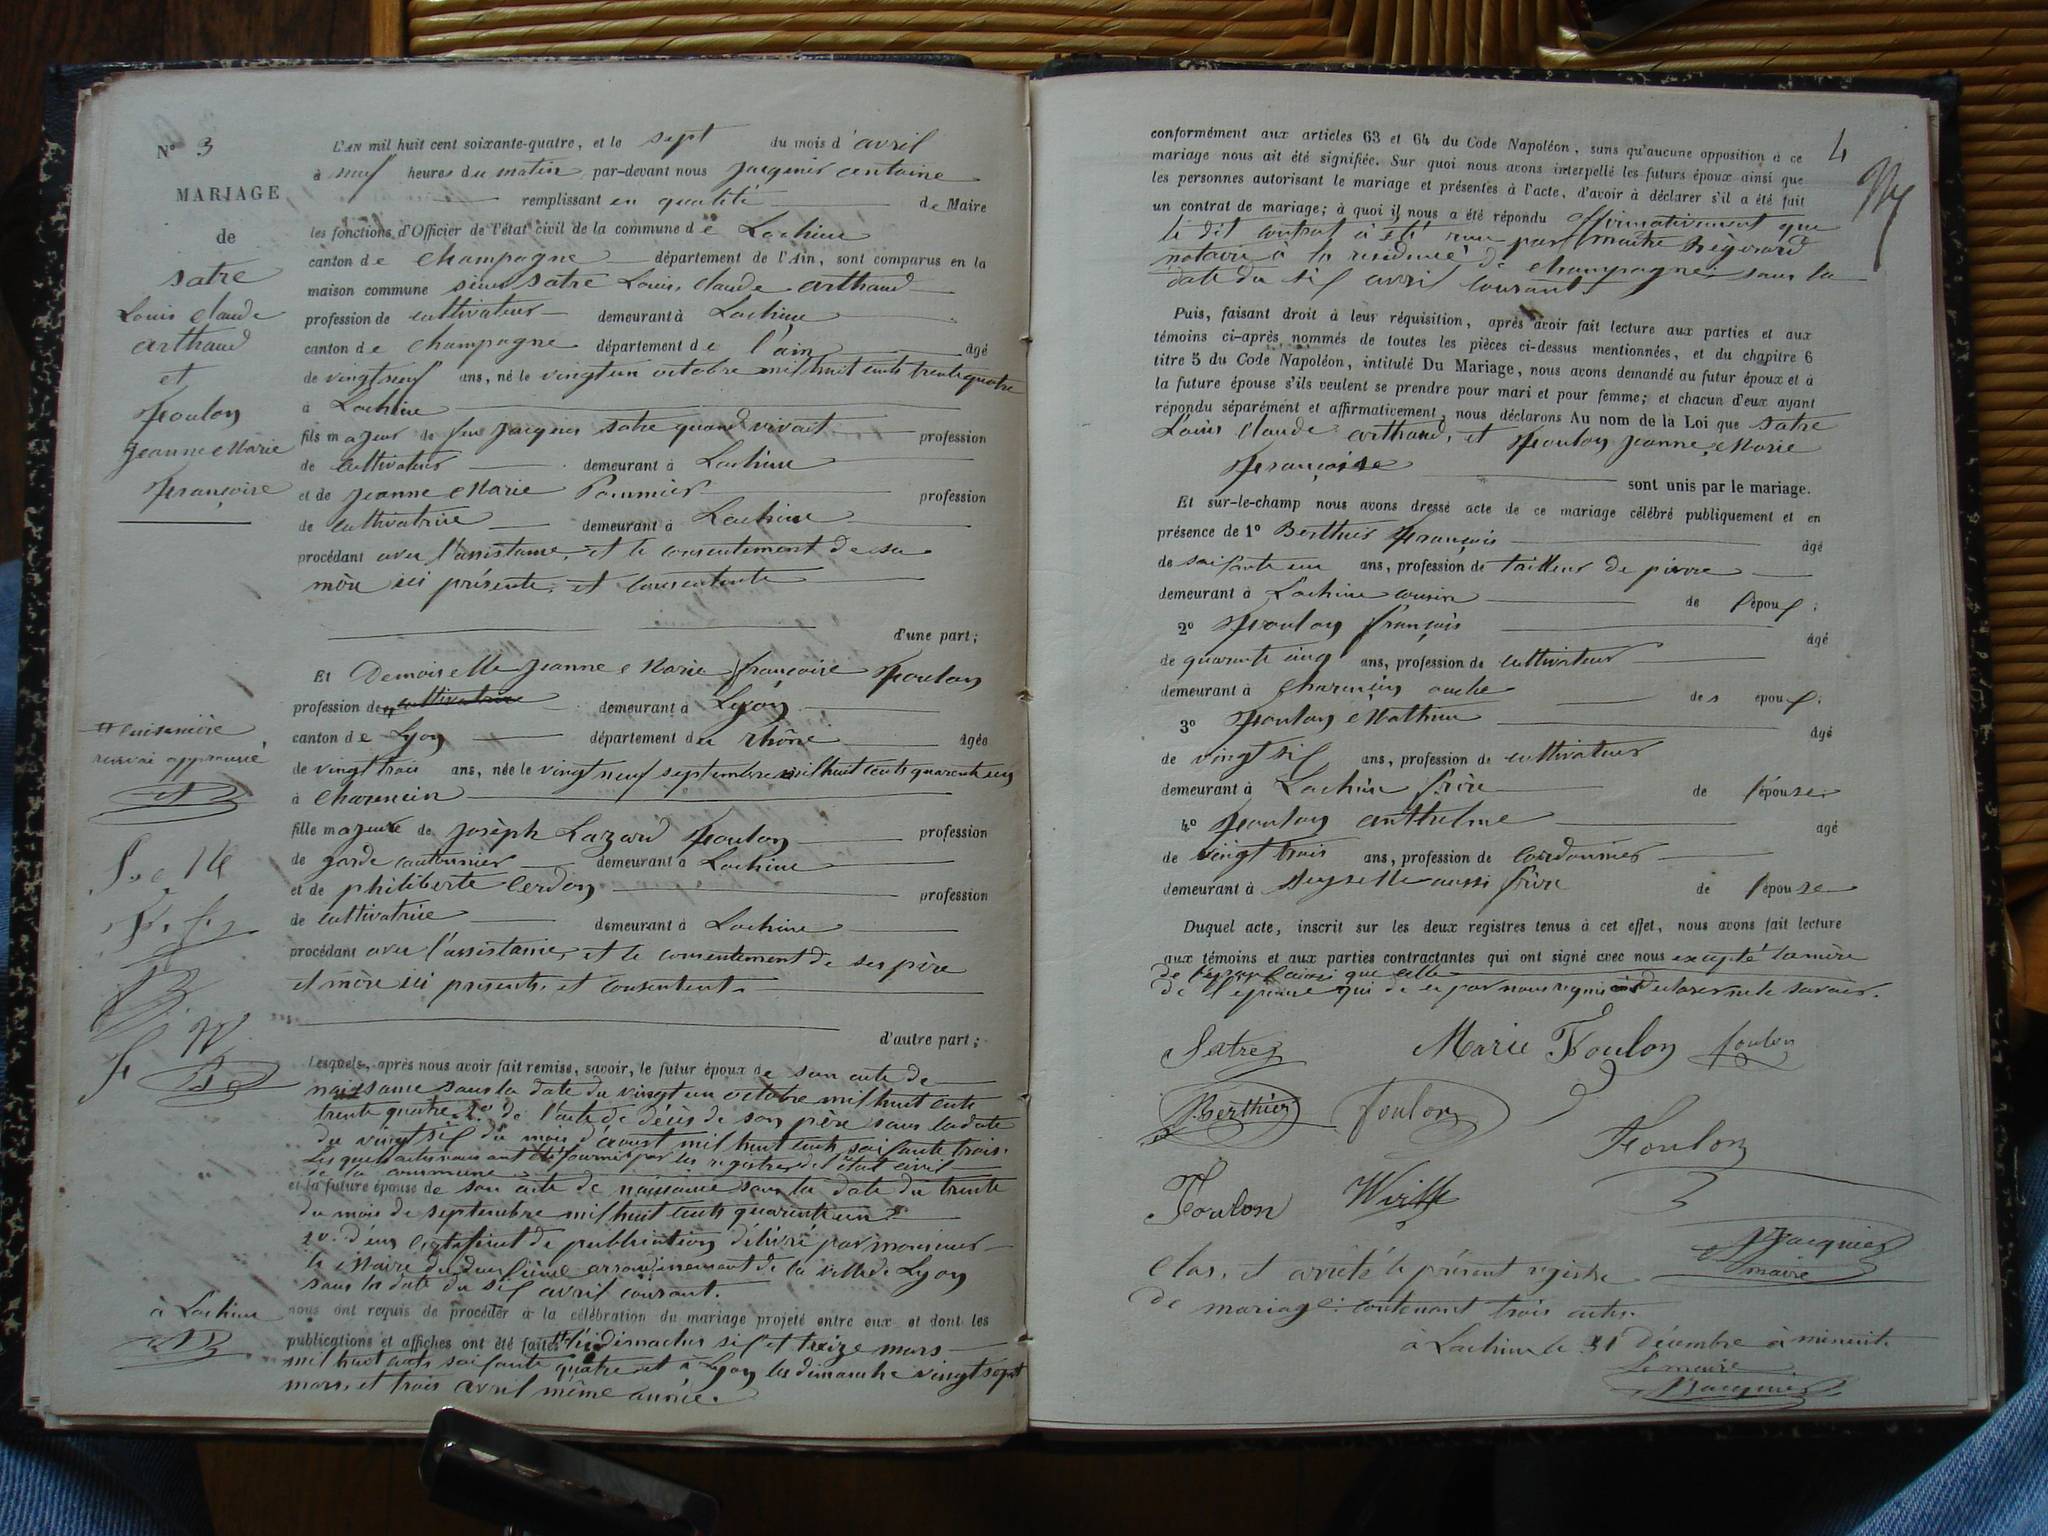 N° 3
MARIAGE
de
Satre
Louis Claude
Arthaud
et
Foulon
Jeanne Marie
Françoise
L'AN mil huit cent soixante-quatre, et le sept du mois d'avril
à neuf heures du matin par-devant nous Jacquier Antoine
remplissant en qualité de Maire
les fonctions d'Officier de l'état civil de la commune de Lochieu
canton de Champagne département de l'Ain, sont comparus en la
maison commune sieur Satre Louis Claude Arthaud
profession de cultivateur demeurant à Lochieu
canton de Champagne département de l'ain âgé
de vingt neuf ans, né le vingt un octobre mil huit cents trente quatre
à Lochieu
fils majeur de feu Jacques Satre quand vivait profession
de cultivateur demeurant à Lochieu
et de Jeanne Marie Pommier profession
de cultivatrice demeurant à Lochieu
procédant avec l'assistance et le consentement de sa
mère ici présente et consentente
d'une part;
Et Demoiselle Jeanne Marie françoise Foulon
profession de cultivatrice demeurant à Lyon
canton de Lyon département du rhône âgée
de vingt trois ans, née le vingt neuf septembre mil huit cents quarente un
à Charencin
fille majeure de Joseph Lazard Foulon profession
de garde cantonnier demeurant à Lochieu
et de philiberte Cerdon profession
de cultivatrice demeurant à Lochieu
procédant avec l'assistance et le consentement de ses père
et mère ici présents et consentent
d'autre part;
cuisinière
renvoi approuvé
Lesquels, après nous avoir fait remise, savoir, le futur époux de son acte de
naissance sous la date du vingt un octobre mil huit cents
trente quatre 2° de l'acte de décès de son père sous la date
du vingt six du mois d'aoust mil huit cents soixante trois.
Lesquels actes nous ont été fournis par les registres de l'état civil
de la commune
et la future épouse de son acte de naissance sous la date du trente
du mois de septembre mil huit cents quarente un
2° d'un certificat de publication délivré par monsieur
le Maire du deuxième arrondissement de la ville de Lyon
sous la date du six avril courant.
nous ont requis de procéder à la célébration du mariage projeté entre eux et dont les
publications et affiches ont été faites les dimanches six et treize mars
mil huit cents soixante quatre et à Lyon les dimanche vingt sept
mars, et trois avril même année.
à Lochieu
4
conformément aux articles 63 et 64 du Code Napoléon, sans qu'aucune opposition à ce
mariage nous ait été signifiée. Sur quoi nous avons interpellé les futurs époux ainsi que
les personnes autorisant le mariage et présentes à l'acte, d'avoir à déclarer s'il a été fait
un contrat de mariage; à quoi il nous a été répondu affirmativement que
le dit contrat à été reçu par maître
notaire à la résidence de Champagne sous la
date du six avril courant.
Puis, faisant droit à leur réquisition, après avoir fait lecture aux parties et aux
témoins ci-après nommés de toutes les pièces ci-dessus mentionnées, et du chapitre 6
titre 5 du Code Napoléon, intitulé Du Mariage, nous avons demandé au futur époux et à
la future épouse s'ils veulent se prendre pour mari et pour femme; et chacun d'eux ayant
répondu séparément et affirmativement, nous déclarons Au nom de la Loi que Satre
Louis Claude Arthaud, et Foulon Jeanne Marie
Françoise
sont unis par le mariage.
Et sur-le-champ nous avons dressé acte de ce mariage célébré publiquement et en
présence de 1° Berthier François âgé
de soixante un ans, profession de tailleur de pierre
demeurant à Lochieu cousin de l'époux;
2° Foulon françois âgé
de quarente cinq ans, profession de cultivateur
demeurant à Charencin oncle des epoux;
3° Foulon Mathieu âgé
de vingt six ans, profession de cultivateur
demeurant à Lochieu frère de l'épouse;
4° Foulon anthelme agé
de vingt trois ans, profession de cordonnier
demeurant à Seyselle aussi frère de l'épouse
Duquel acte, inscrit sur les deux registres tenus à cet effet, nous avons fait lecture
aux témoins et aux parties contractantes qui ont signé avec nous excepté la mère
de l'époux ainsi que celle
de l'épouse qui de ce par nous requis ont déclaré ne le savoir.
Satre Marie Foulon foulon
Berthier foulon
Foulon
Foulon
J Jacquier
maire
Clos, et arrêté le présent registre
de mariage contenant trois actes.
à Lochieu le 31 Décembre à minuit.
Le maire
Jacquier